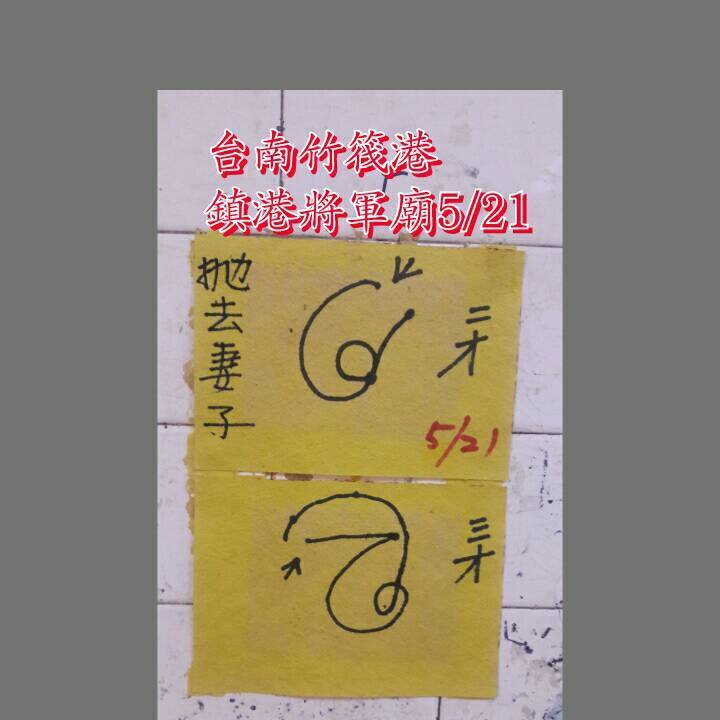 台南竹筏港
鎮港將軍廟5/21
抛去妻子
二才
5/21
三才